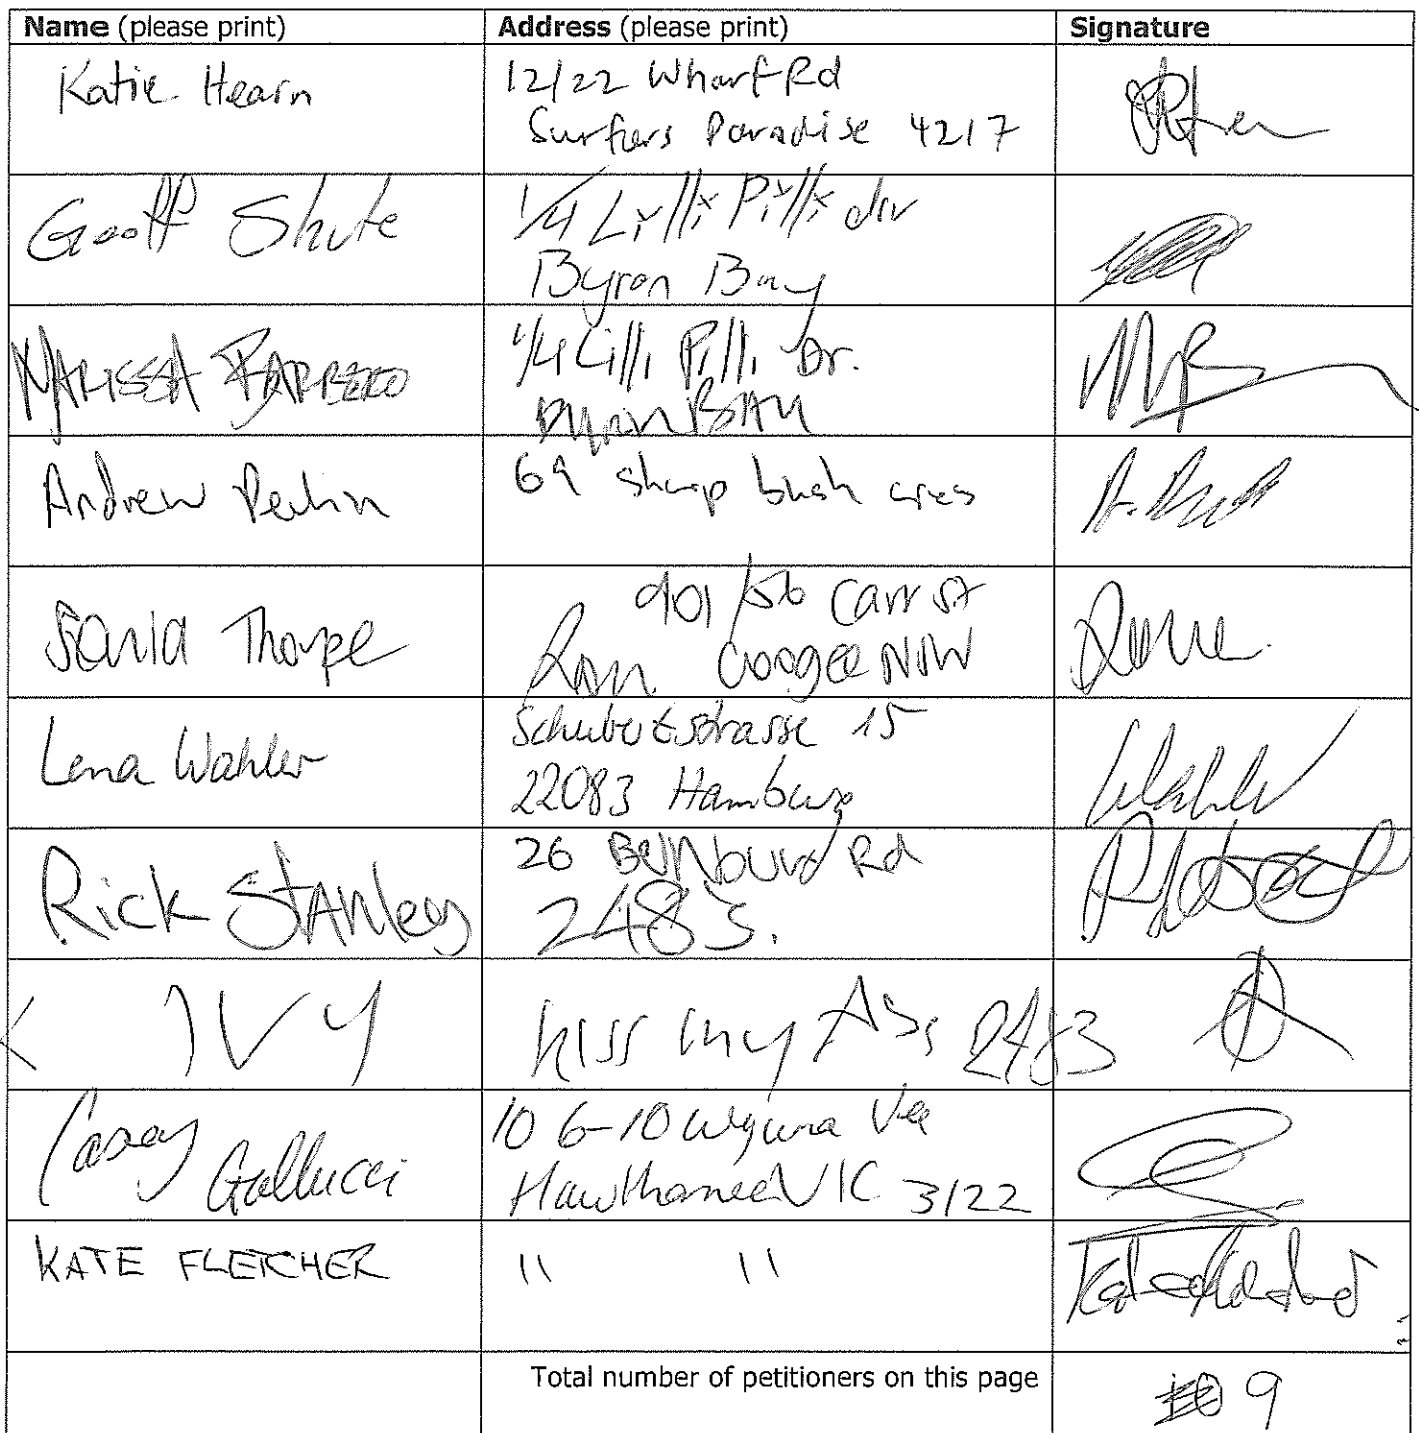 Name (please print) Address (please print) Signature
Katie Hearn 12/22 Wharf Rd
Surfers Paradise 4217
Geoff Shute 1/4 Lilli Pilli div
Byron Bay
MARISSA 1/4 Lilli Pilli Dr.
BYRON BAY
Andrew 69 bush cres
Sonia Thorpe 901/56 Carr St
Coogee NSW
Lena Wahler Schubertstrasse 15
22083 Hamburg
Rick Stanley 26 Rd
2483.
IVY kiss my Ass 2483
Casey Gallucci 10 6-10
VIC 3122
KATE FLETCHER " "
Total number of petitioners on this page 9